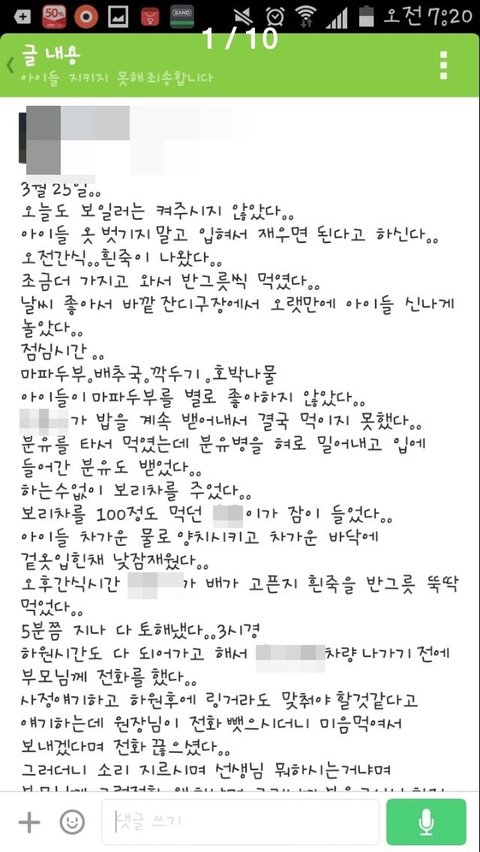 50%
BAND
오전 7:20
1 / 10
글 내용
아이들 지키지 못해죄송합니다
3월 25일。。
오늘도 보일러는 켜주시지 않았다。。
아이들 옷 벗기지 말고 입혀서 재우면 된다고 하신다。。
오전간식。。흰죽이 나왔다。。
조금더 가지고 와서 반그릇씩 먹였다。。
날씨 좋아서 바깥 잔디구장에서 오랫만에 아이들 신나게
놀았다。。
점심시간。。
마파두부。배추국。깍두기。호박나물
아이들이 마파두부를 별로 좋아하지 않았다。。
가 밥을 계속 뱉어내서 결국 먹이지 못했다。。
분유를 타서 먹였는데 분유병을 혀로 밀어내고 입에
들어간 분유도 뱉었다。。
하는수없이 보리차를 주었다。。
보리차를 100정도 먹던 이가 잠이 들었다。。
아이들 차가운 물로 양치시키고 차가운 바닥에
겉옷입힌채 낮잠재웠다。。
오후간식시간 가 배가 고픈지 흰죽을 반그릇 뚝딱
먹었다。。
5분쯤 지나 다 토해냈다。。3시경
하원시간도 다 되어가고 해서 차량 나가기 전에
부모님께 전화를 했다。。
사정얘기하고 하원후에 링거라도 맞춰야 할것같다고
얘기하는데 원장님이 전화 뺏으시더니 미음먹여서
보내겠다며 전화 끊으셨다。。
그러더니 소리 지르시며 선생님 뭐하시는거냐며
댓글 쓰기